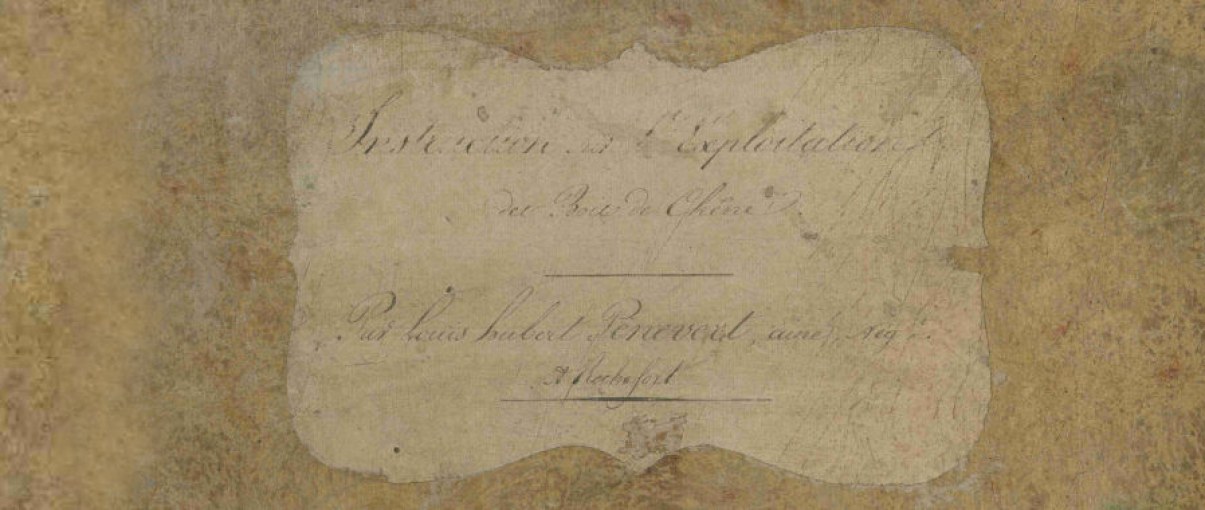 Instruction sur l'Exploitation
des Bois de Chêne
Par Louis hubert Penevert, ainé,
A Rochefort